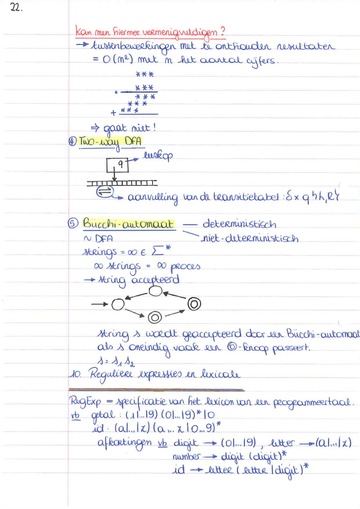 22.
Kan men hiermee vermenigvuldigen?
→ tussenbewerkingen met te onthouden resultaten
= O(n²) met n het aantal cijfers.
***
* ***
***
***
+ ***
⇒ gaat niet!
④ Two-way DFA
q → leeskop
→ aanvulling van de transitietabel: δ x q ↦ L, R
⑤ Büchi-automaat — deterministisch
~ DFA — niet-deterministisch
strings = ∞ ∈ Σ*
∞ strings = ∞ proces
→ string accepteerd
string s wordt geaccepteerd door een Büchi-automaat
als s oneindig vaak een ◎-knoop passeert.
s = s₁ s₂
10. Reguliere expressies en lexicale
RegExp = specificatie van het lexicon van een programmeertaal.
vb getal: (1|..|9)(0|..|9)*|0
id: (a|..|z)(a..z|0..9)*
afkortingen vb digit → (0|..|9), letter → (a|..|z)
number → digit (digit)*
id → letter (letter|digit)*